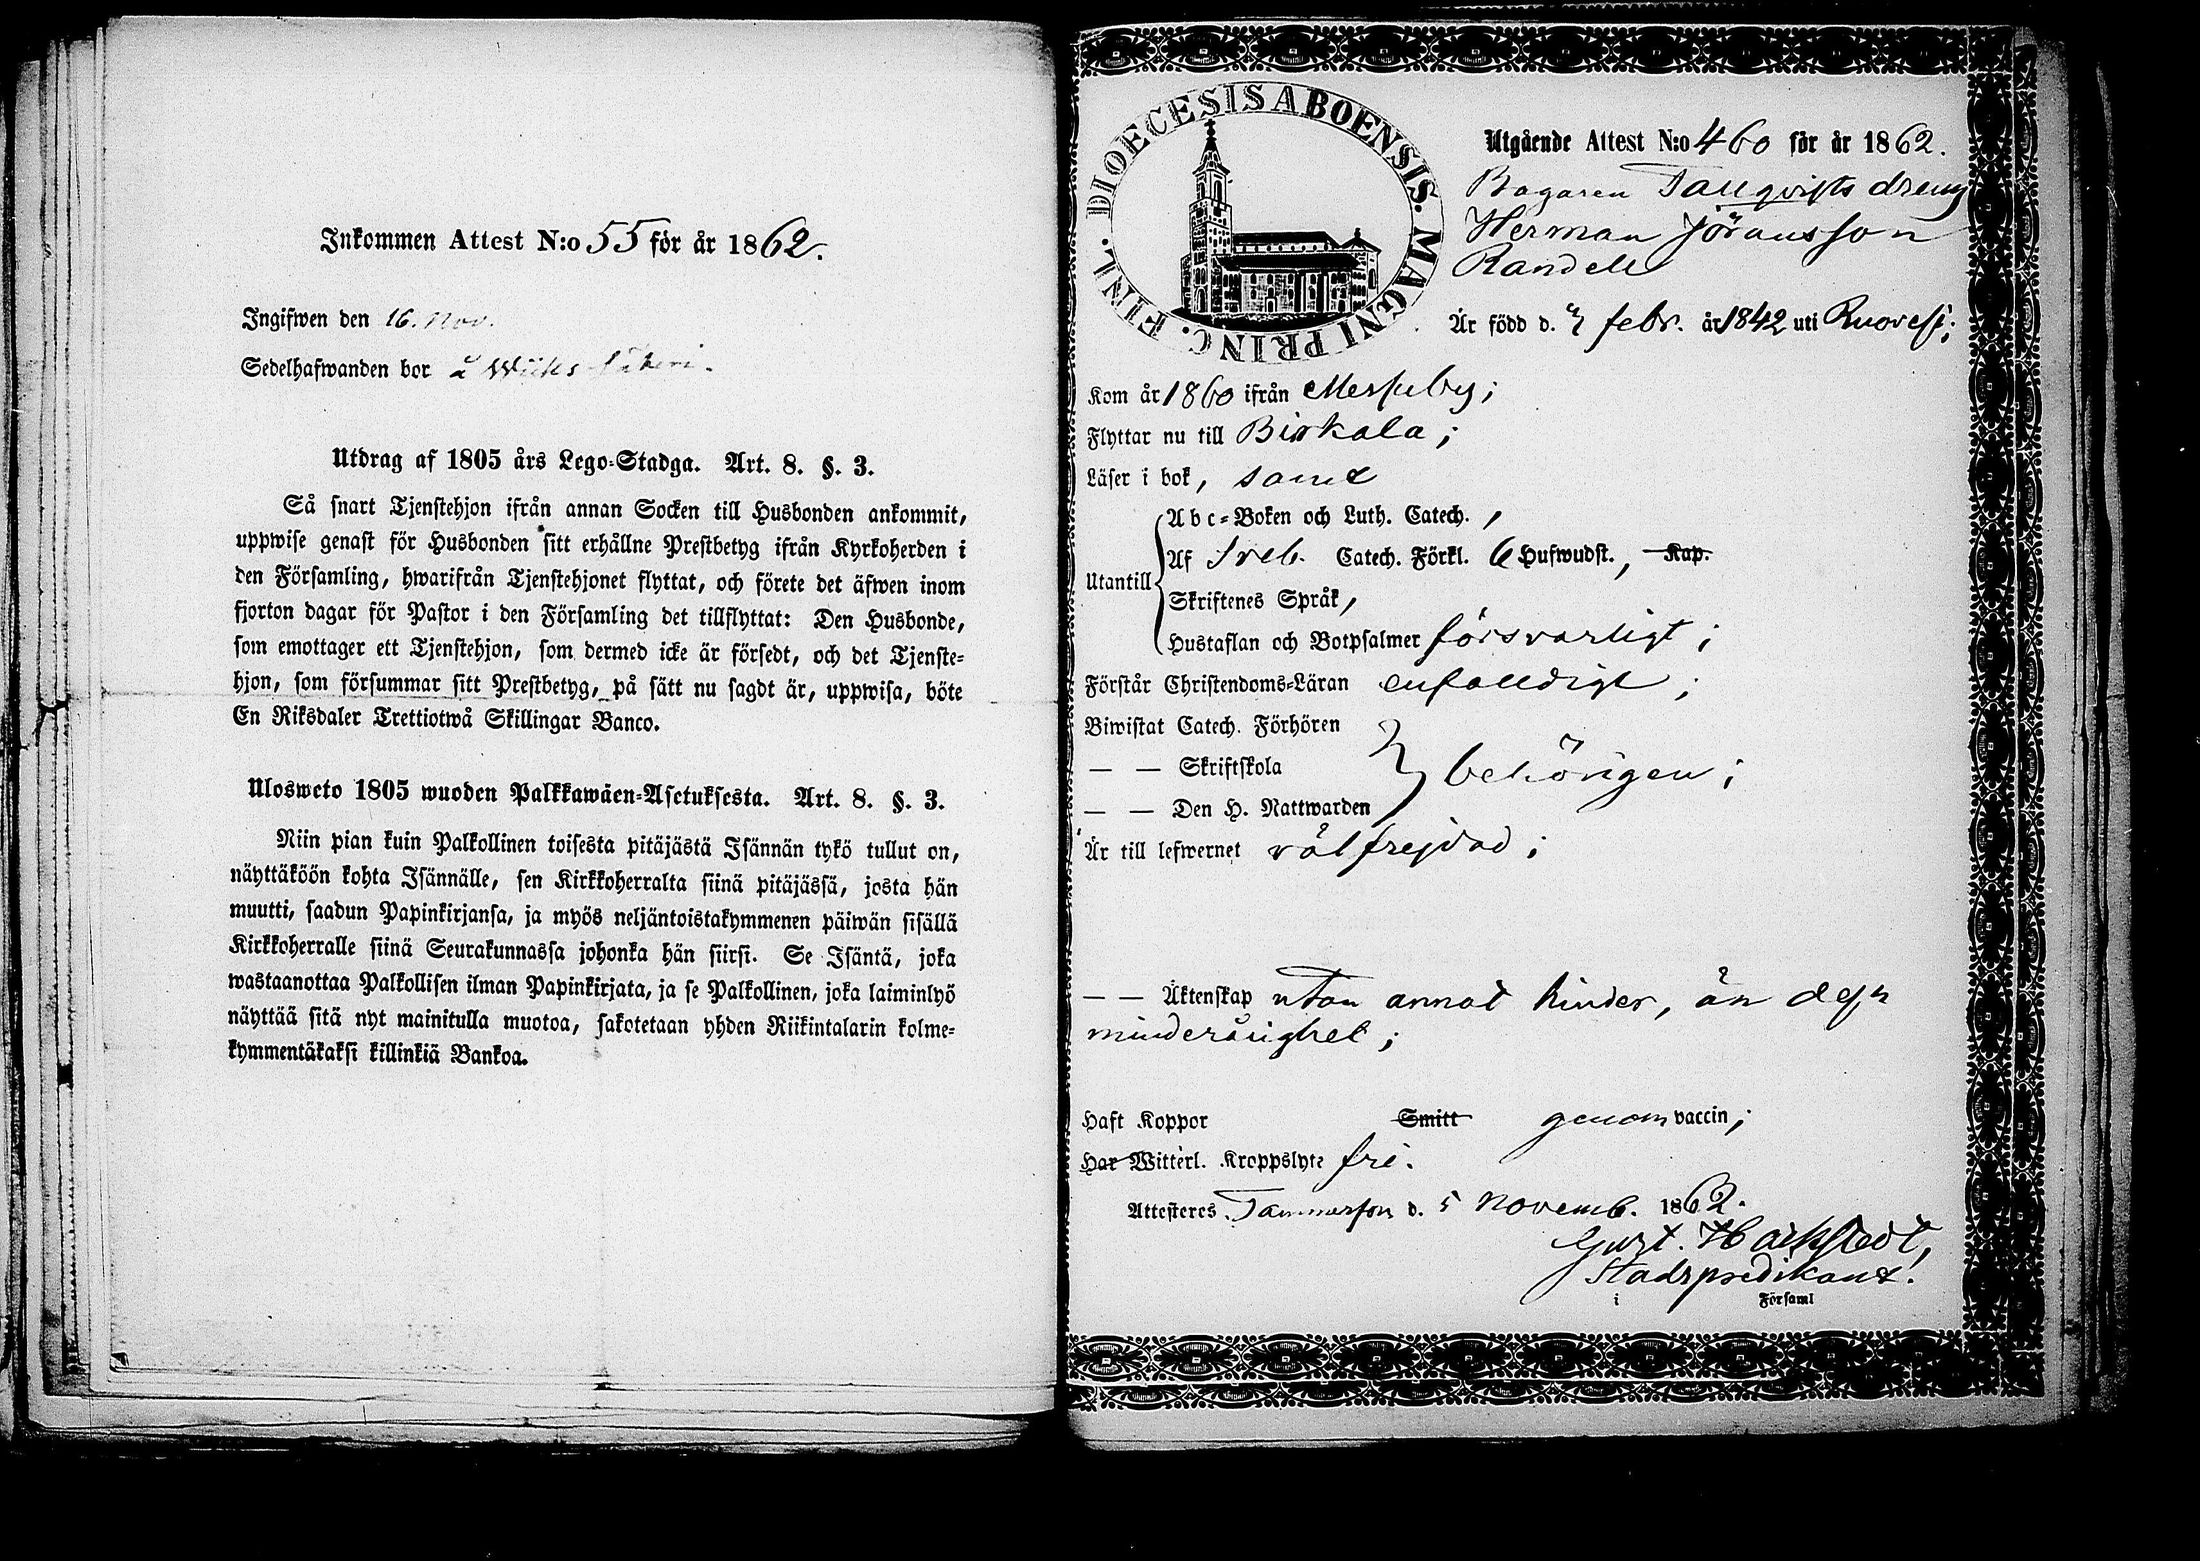 Inkommen Attest N:o 55 för år 1862.
Ingifwen den 16. Nov.
Sedelhafwanden bor å Wiiks säteri.
Utdrag af 1805 års Lego-Stadga. Art. 8. §. 3.
Så snart Tjenstehjon ifrån annan Socken till Husbonden ankommit,
uppwise genast för Husbonden sitt erhållne Prestbetyg ifrån Kyrkoherden i
den Församling, hwarifrån Tjenstehjonet flyttat, och förete det äfwen inom
fjorton dagar för Pastor i den Församling det tillflyttat: Den Husbonde,
som emottager ett Tjenstehjon, som dermed icke är försedt, och det Tjenste-
hjon, som försummar sitt Prestbetyg, på sätt nu sagdt är, uppwisa, böte
En Riksdaler Trettiotwå Skillingar Banco.
Ulosweto 1805 wuoden Palkkawäen-Asetuksesta. Art. 8. §. 3.
Niin pian kuin Palkollinen toisesta pitäjästä Isännän tykö tullut on,
näyttäköön kohta Isännälle, sen Kirkkoherralta siinä pitäjässä, josta hän
muutti, saadun Papinkirjansa, ja myös neljäntoistakymmenen päiwän sisällä
Kirkkoherralle siinä Seurakunnassa johonka hän siirsi. Se Isäntä, joka
wastaanottaa Palkollisen ilman Papinkirjata, ja se Palkollinen, joka laiminlyö
näyttää sitä nyt mainitulla muotoa, sakotetaan yhden Riikintalarin kolme-
kymmentäkaksi killinkiä Bankoa.
DIOECESIS ABOENSIS. MAGNI PRINC. FINL.
Utgående Attest N:o 460 för år 1862.
Bagaren Tallqvists dreng
Herman Jöransson
Randell
Är född d. 7 febr. år 1842 uti Ruovesi;
Kom år 1860 ifrån Messuby;
Flyttar nu till Birkala;
Läser i bok, samt
Utantill
Abc-Boken och Luth. Catech.,
Af Sveb. Catech. Förkl. 6 Hufwudst., Kap.
Skriftenes Språk,
Hustaflan och Botpsalmer försvarligt;
Förstår Christendoms-Läran enfalldigt;
Biwistat Catech. Förhören
— — Skriftskola
behörigen;
— — Den H. Nattwarden
Är till lefwernet välfrejdad;
— — Äktenskap utan annat hinder, än dess
minderårighet;
Haft Koppor Smitt genom vaccin;
Har Witterl. Kroppslyte fri.
Attesteras Tammerfors d. 5 Novemb. 1862.
Gust.
Stadspredikant.
i Församl